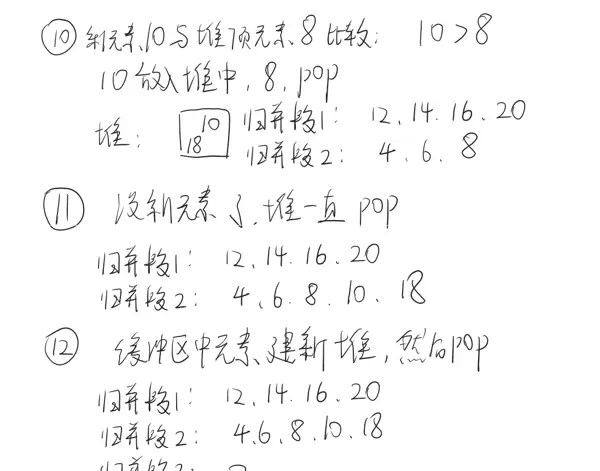 ⑩ 新元素10与堆顶元素8比较: 10>8
10放入堆中, 8, pop
堆: 10 18 归并段1: 12、14、16、20
归并段2: 4、6、8
⑪ 没新元素了、堆一直pop
归并段1: 12、14、16、20
归并段2: 4、6、8、10、18
⑫ 缓冲区中元素、建新堆, 然后pop
归并段1: 12、14、16、20
归并段2: 4、6、8、10、18